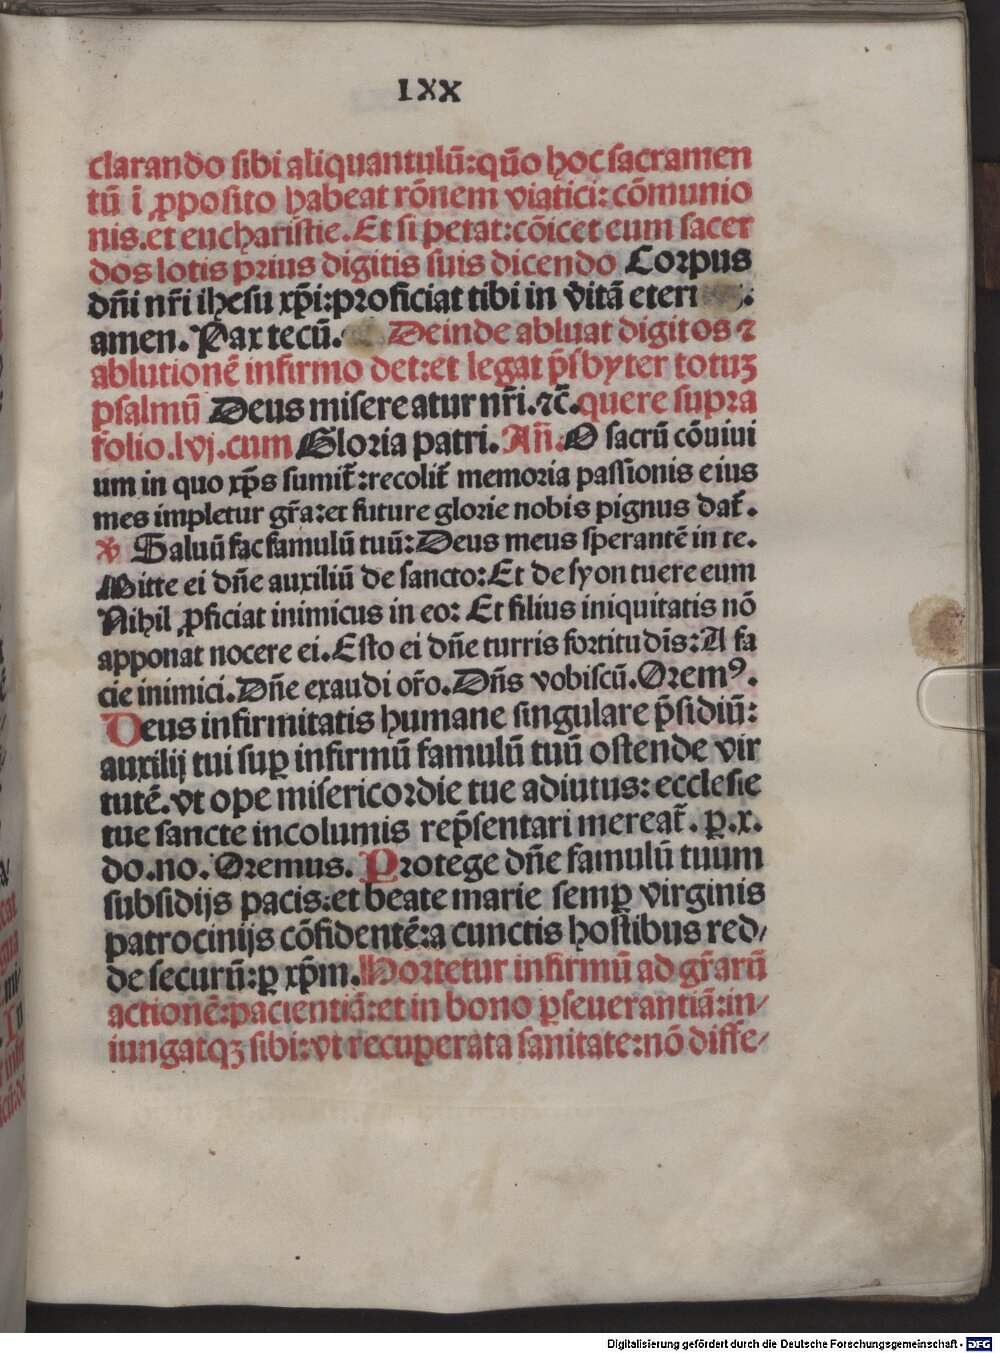 LXX
clarando sibi aliquantulū:quō hoc sacramen
tū ī ꝓposito habeat rōnem viatici:cōmunio
nis.et eucharistie.Et si petat:cōicet eum sacer
dos lotis prius digitis suis dicendo Corpus
dñi nr̄i ihesu xp̄i:proficiat tibi in vitā eteri
amen. Pax tecū. Deinde abluat digitos ⁊
ablutionē infirmo det:et legat p̄sbyter totuꝫ
psalmū Deus misereatur nr̄i.⁊c̄.quere supra
folio.lvj.cum Gloria patri. Añ.O sacrū cōuiui
um in quo xp̄s sumit̄:recolit̄ memoria passionis eius
mes impletur gr̄a:et future glorie nobis pignus dat̄.
℣ Saluū fac famulū tuū:Deus meus sperantē in te.
Mitte ei dñe auxiliū de sancto:Et de syon tuere eum
Nihil ꝓficiat inimicus in eo: Et filius iniquitatis nō
apponat nocere ei.Esto ei dñe turris fortitudīs:A fa
cie inimici.Dñe exaudi or̄o.Dñs vobiscū.Oremꝰ.
Deus infirmitatis humane singulare p̄sidiū:
auxilij tui suꝑ infirmū famulū tuū ostende vir
tutē.vt ope misericordie tue adiutus:ecclesie
tue sancte incolumis rep̄sentari mereat̄. ꝑ.x.
do.no. Oremus. Protege dñe famulū tuum
subsidijs pacis:et beate marie semꝑ virginis
patrocinijs cōfidentē:a cunctis hostibus red/
de securū:ꝑ xp̄m.Hortetur infirmū ad gr̄arū
actionē:pacientiā:et in bono ꝑseuerantiā:in/
iungatqꝫ sibi:vt recuꝑerata sanitate:nō diffe/
Digitalisierung gefördert durch die Deutsche Forschungsgemeinschaft - DFG